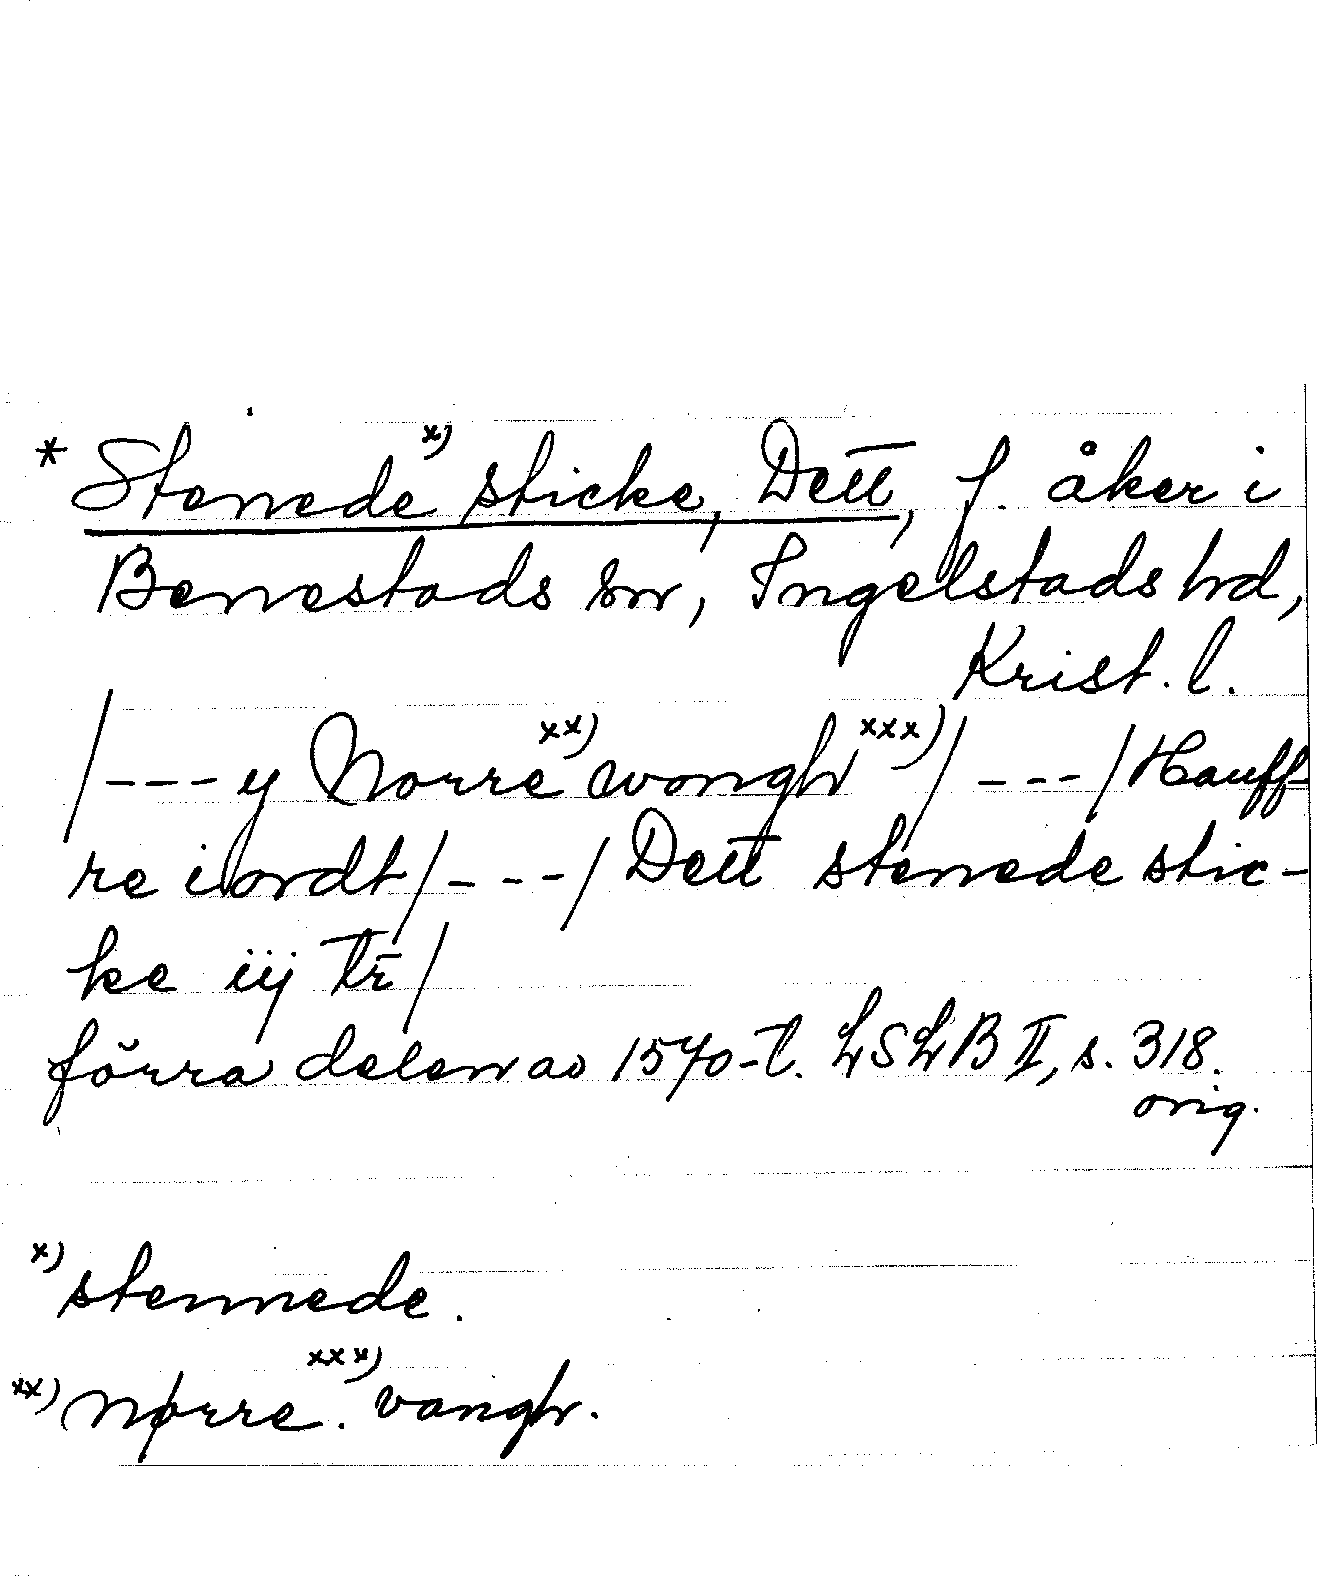 * Stenede x) sticke, Dett, f. åker i
Benestads sn, Ingelstads hd,
Krist. l.
/--- y Norre xx) wongh xxx)/ ---/ Hauff-
re iordt/---/ Dett stenede stic-
ke iij tr/
förra delen av 1570-t. LSLB II, s. 318.
orig.
x) stennede.
xx) Nørre. xxx) vangh.